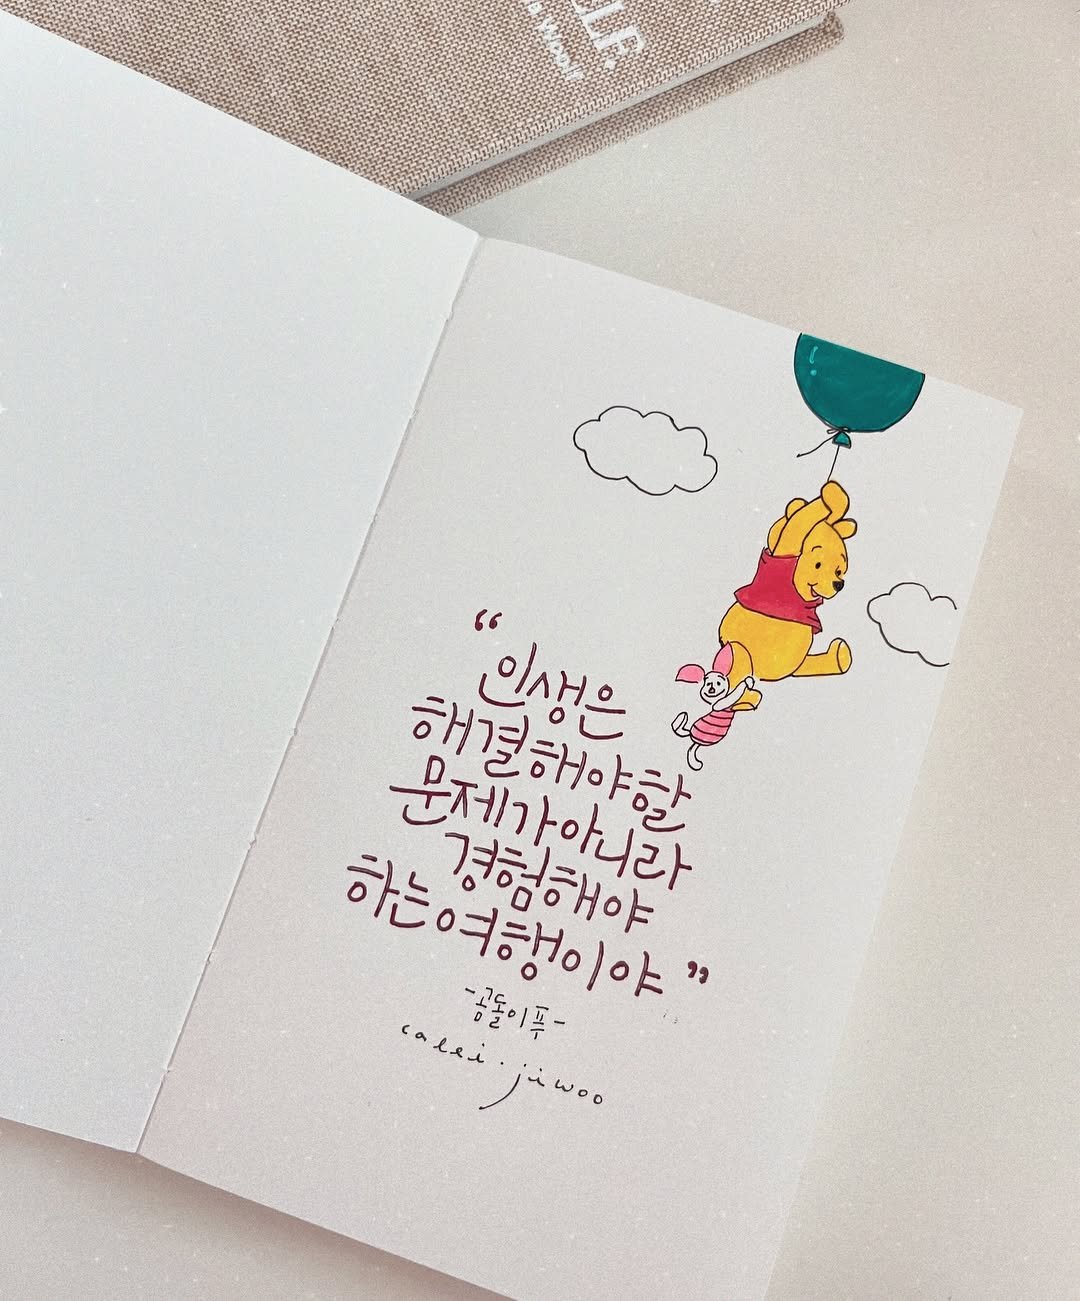 LF.
a Woolf
“인생은
해결해야할
문제가아니라
경험해야
하는여행이야”
-곰돌이푸-
calli.jiwoo